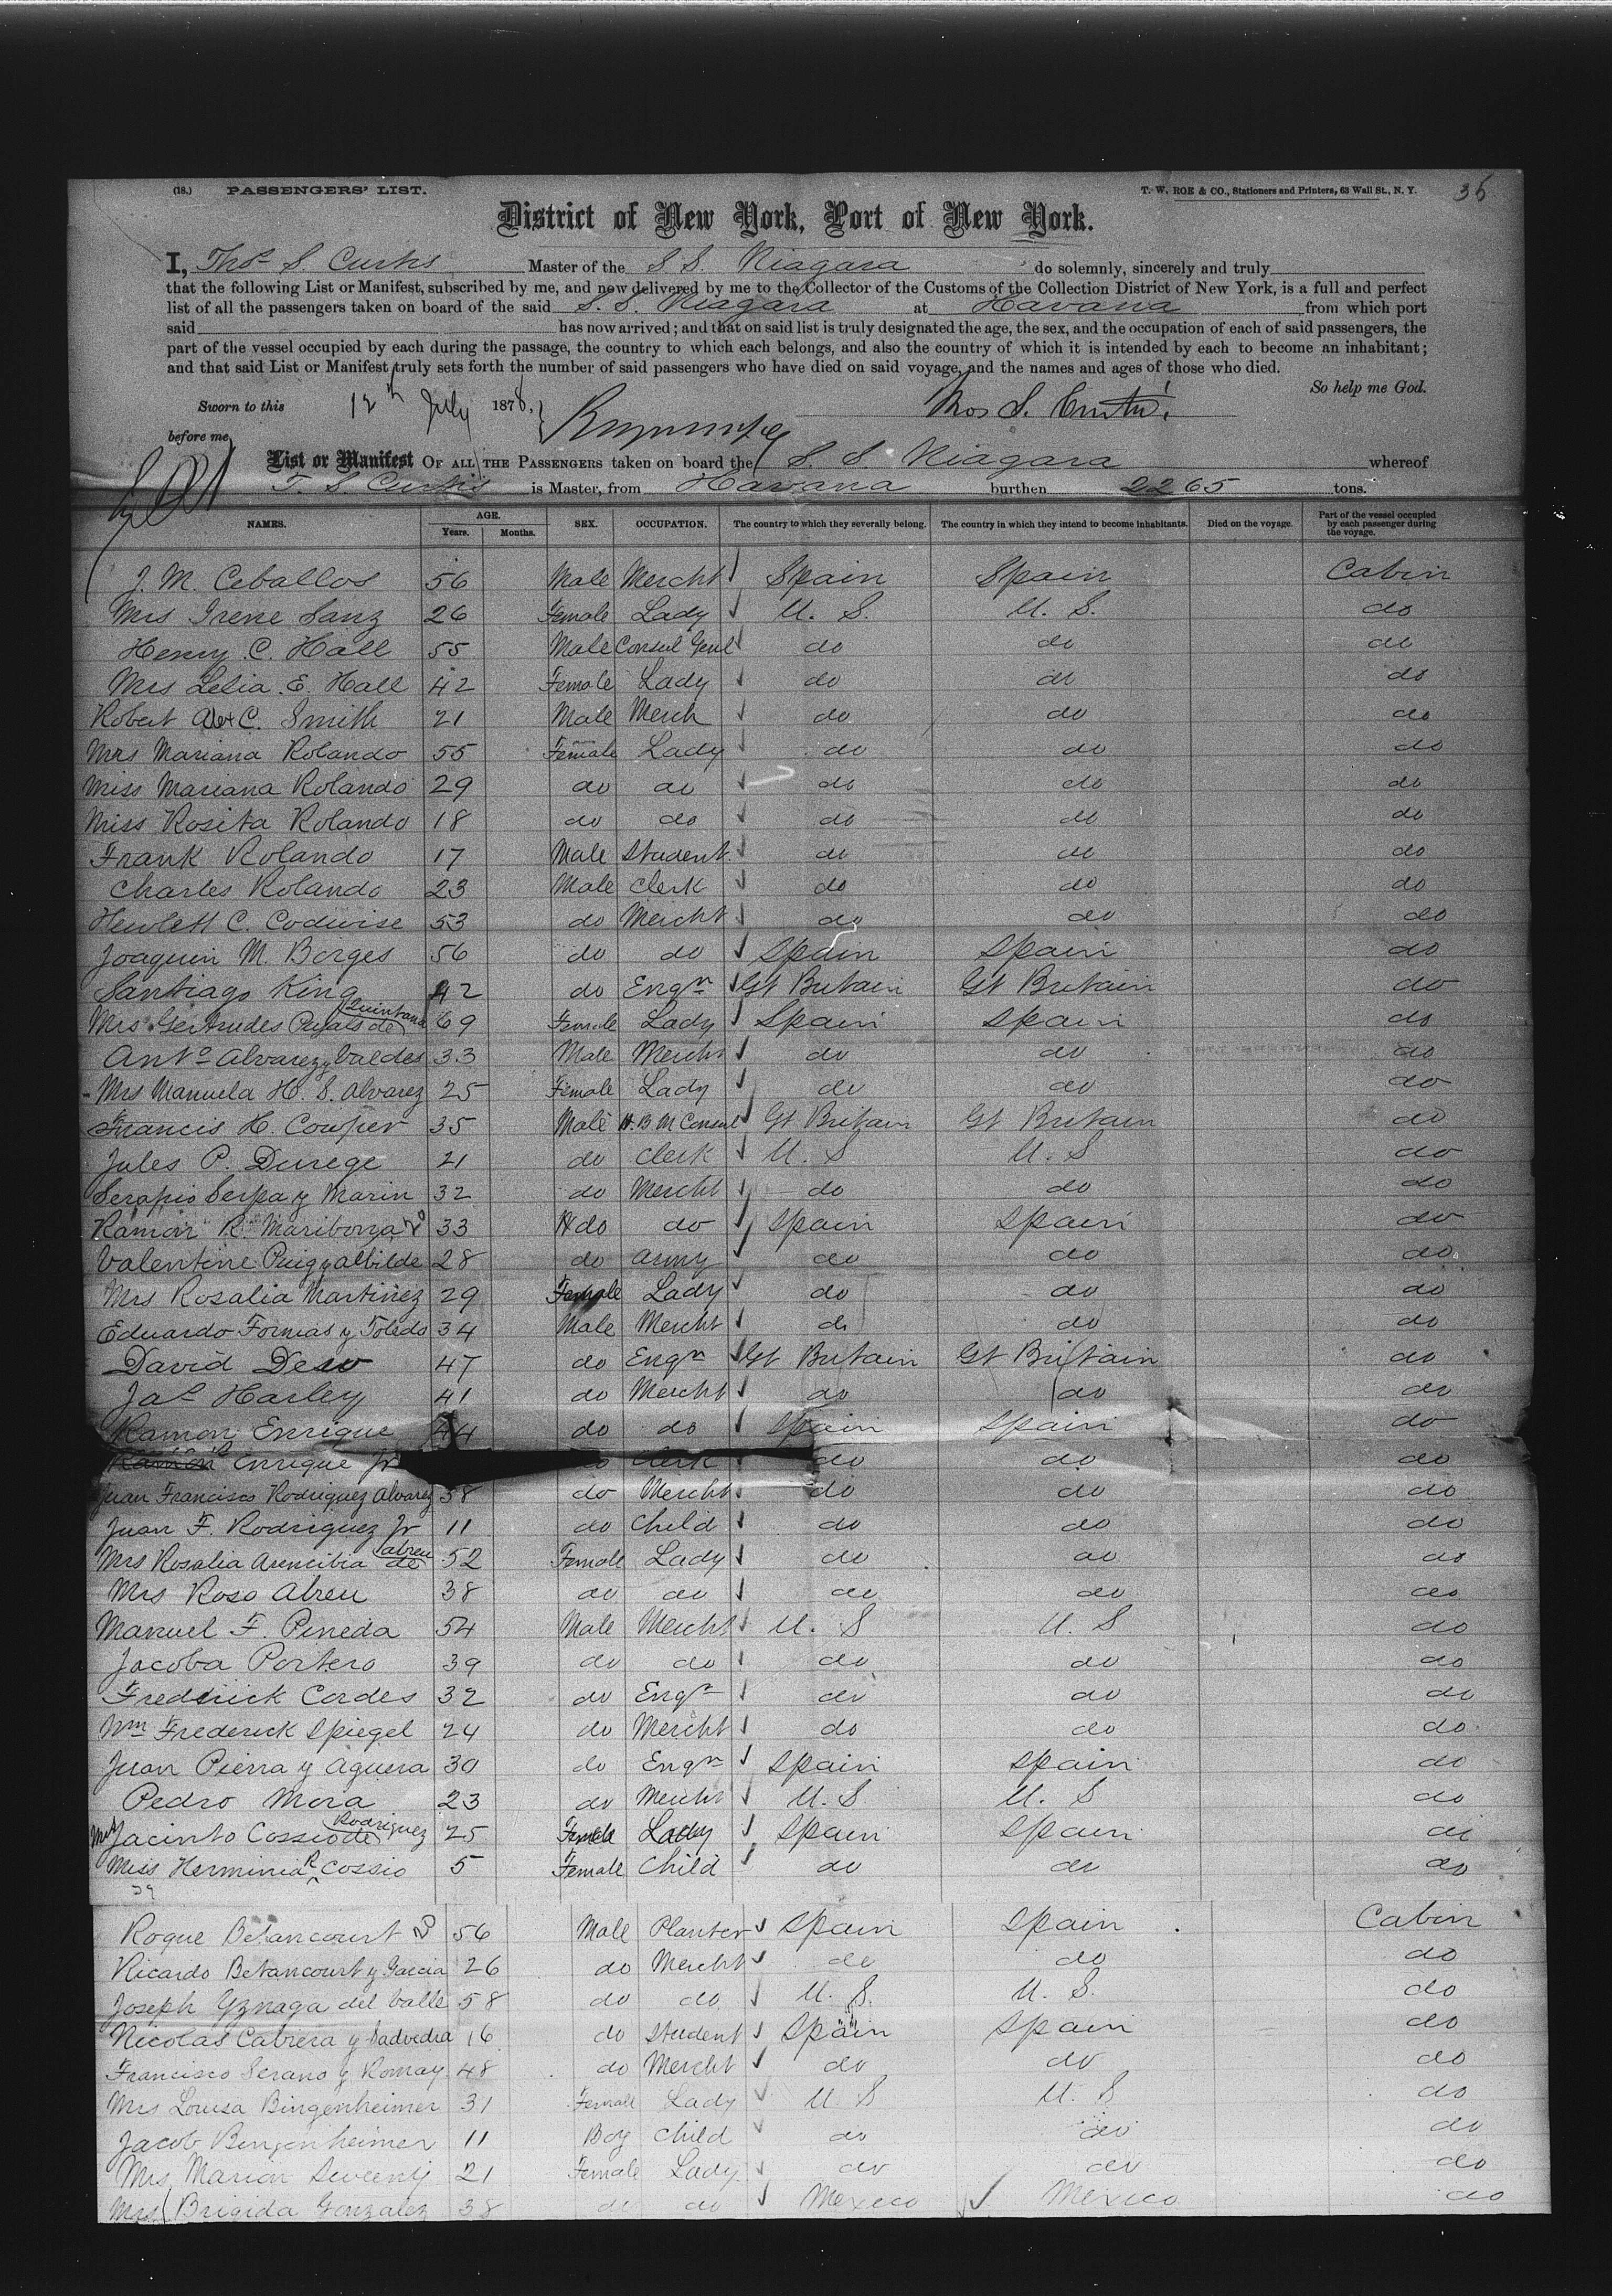 (18.) PASSENGERS' LIST. T. W. ROE & CO., Stationers and Printers, 63 Wall St., N. Y. 36
District of New York, Port of New York.
I, Thos S. Curtis Master of the S S. Niagara do solemnly, sincerely and truly
that the following List or Manifest, subscribed by me, and now delivered by me to the Collector of the Customs of the Collection District of New York, is a full and perfect
list of all the passengers taken on board of the said S. S. Niagara at Havana from which port
said has now arrived; and that on said list is truly designated the age, the sex, and the occupation of each of said passengers, the
part of the vessel occupied by each during the passage, the country to which each belongs, and also the country of which it is intended by each to become an inhabitant;
and that said List or Manifest truly sets forth the number of said passengers who have died on said voyage, and the names and ages of those who died.
So help me God.
Sworn to this 12th July 1878, Thos S. Curtis
before me
List or Manifest OF ALL THE PASSENGERS taken on board the S. S. Niagara whereof
T. S. Curtis is Master, from Havana burthen 2265 tons.
NAMES. AGE. Years. Months. SEX. OCCUPATION. The country to which they severally belong. The country in which they intend to become inhabitants. Died on the voyage. Part of the vessel occupied by each passenger during the voyage.
J. M. Ceballos 56 Male Mercht Spain Spain Cabin
Mrs Irene Sanz 26 Female Lady U. S. U. S. do
Henry C. Hall 55 Male Consul Genl do do do
Mrs Lelia E. Hall 42 Female Lady do do do
Robert Alex C. Smith 21 Male Merch do do do
Mrs Mariana Rolando 55 Female Lady do do do
Miss Mariana Rolando 29 do do do do do
Miss Rosita Rolando 18 do do do do do
Frank Rolando 17 Male Student do do do
Charles Rolando 23 Male Clerk do do do
Hewlett C. Codwise 53 do Mercht do do do
Joaquin M. Borges 56 do do Spain Spain do
Santiago King 42 do Engr Gt Britain Gt Britain do
Mrs Gertrudes Pujals de Quintana 69 Female Lady Spain Spain do
Anto Alvarez y Valdes 33 Male Mercht do do do
Mrs Manuela H. S. Alvarez 25 Female Lady do do do
Francis H. Cowper 35 Male H. B M Consul Gt Britain Gt Britain do
Jules P. Durege 21 do Clerk U. S U. S do
Serapio Serpa y Marin 32 do Mercht do do do
Ramon R. Maribona 33 do do Spain Spain do
Valentine Puig y Albilde 28 do Army do do do
Mrs Rosalia Martinez 29 Female Lady do do do
Eduardo Formas y Toledo 34 Male Mercht do do do
David 47 do Engr Gt Britain Gt Britain do
Jas Harley 41 do Mercht do do do
Ramon Enrique 44 do do Spain Spain do
Ramon Enrique Jr do Clerk do do do
Juan Francisco Rodriguez Alvarez 38 do Mercht do do do
Juan F. Rodriguez Jr 11 do Child do do do
Mrs Rosalia Arencibia de Abreu 52 Female Lady do do do
Mrs Rosa Abreu 38 do do do do do
Manuel F. Pineda 54 Male Mercht U. S U. S do
Jacoba Portero 39 do do do do do
Frederick Cordes 32 do Engr do do do
Wm Frederick Spiegel 24 do Mercht do do do
Juan Pierra y Aguera 30 do Engr Spain Spain do
Pedro Mora 23 do Mercht U. S U. S do
Mrs Jacinto Cossio de Rodriguez 25 Female Lady Spain Spain do
Miss Herminia R Cossio 5 Female Child do do do
39
Roque Betancourt 56 Male Planter Spain Spain Cabin
Ricardo Betancourt y Garcia 26 do Mercht do do do
Joseph Yznaga del Valle 58 do do U. S. U. S. do
Nicolas Cabrera y Sadvedra 16 do Student Spain Spain do
Francisco Serano y Romay 48 do Mercht do do do
Mrs Louisa Bingenheimer 31 Female Lady U S U. S do
Jacob Bingenheimer 11 Boy Child do do do
Mrs Marion Sweeny 21 Female Lady do do do
Mrs Brigida Gonzalez 38 do do Mexico Mexico do